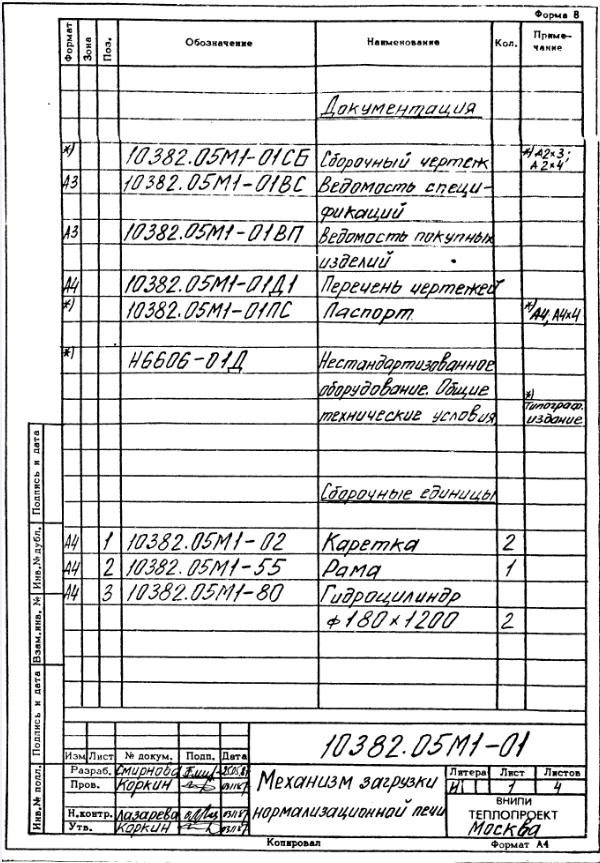 Форма 8
Формат Зона Поз. Обозначение Наименование Кол. Приме-
чание
Документация
*) 10382.05М1-01СБ Сборочный чертеж *) А2×3;
А2×4;
А3 10382.05М1-01ВС Ведомость специ-
фикаций
А3 10382.05М1-01ВП Ведомость покупных
изделий
А4 10382.05М1-01Д1 Перечень чертежей
*) 10382.05М1-01ПС Паспорт *) А4; А4×4
*) Н6606-01Д Нестандартизованное
оборудование. Общие *)
технические условия Типограф.
издание
Сборочные единицы
А4 1 10382.05М1-02 Каретка 2
А4 2 10382.05М1-55 Рама 1
А4 3 10382.05М1-80 Гидроцилиндр
ф 180×1200 2
Инв.№ подл. Подпись и дата Взам.инв. № Инв.№ дубл. Подпись и дата
10382.05М1-01
Изм Лист № докум. Подп. Дата
Разраб. Смирнова
Пров. Коркин
Н.контр. Лазарева
Утв. Коркин
Механизм загрузки
нормализационной печи
Литера Лист Листов
И 1 4
ВНИПИ
ТЕПЛОПРОЕКТ
Москва
Копировал Формат А4